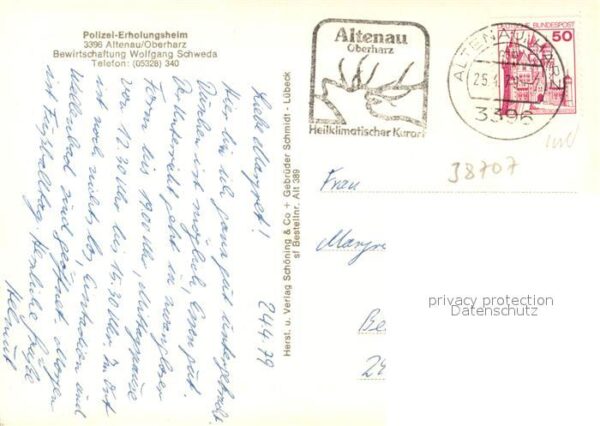 Polizei-Erholungsheim
3396 Altenau/Oberharz
Bewirtschaftung Wolfgang Schweda
Telefon: (05328) 340
24.4.79
Liebe Margret!
Hier bin ich ganz gut untergebracht.
Duschen ist möglich, Essen gut.
Der Unterricht geht in
Form bis 19.00 Uhr, Mittagspause
von 12.30 Uhr bis 15.30 Uhr. Im Ort
ist noch nichts los, und
Wellenbad sind geöffnet. Morgen
ist Fußballtag. Herzliche Grüße
Helmut
Herst. u. Verlag Schöning & Co + Gebrüder Schmidt - Lübeck
sf Bestellnr. Alt 389
Altenau
Oberharz
Heilklimatischer Kurort
ALTENAU, HARZ
3396
DEUTSCHE BUNDESPOST
50
38707
Frau
privacy protection
Datenschutz